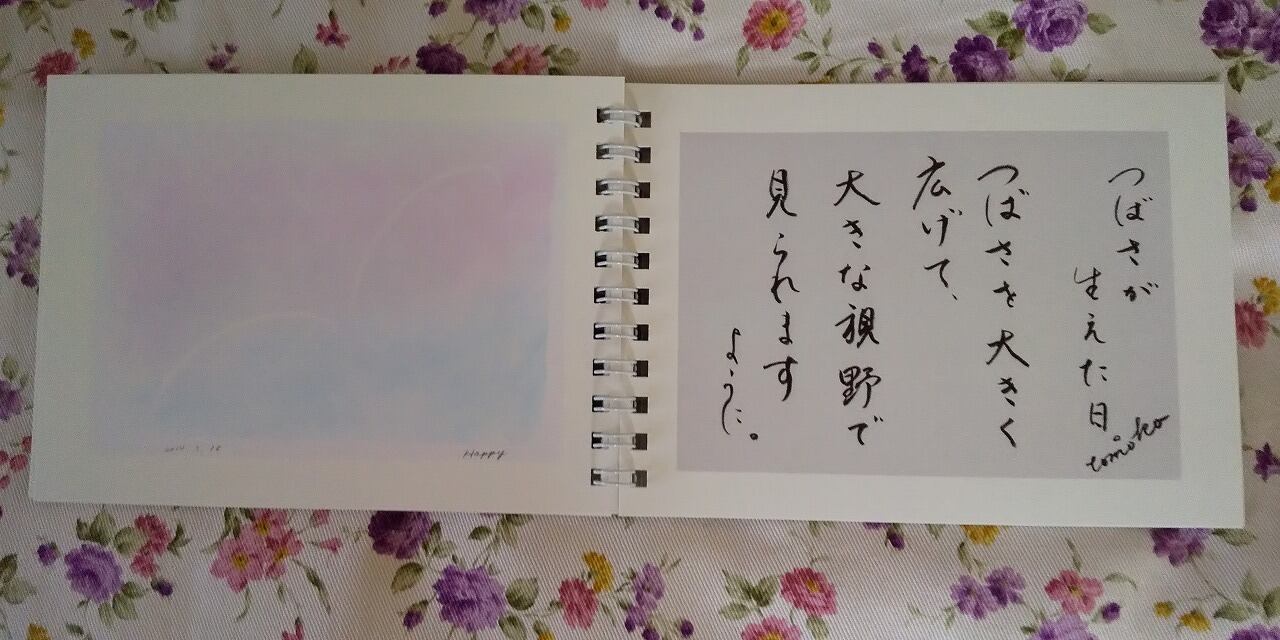 つばさが
生えた日。
つばさを大きく
広げて、
大きな視野で
見られます
ように。
tomoko
Happy